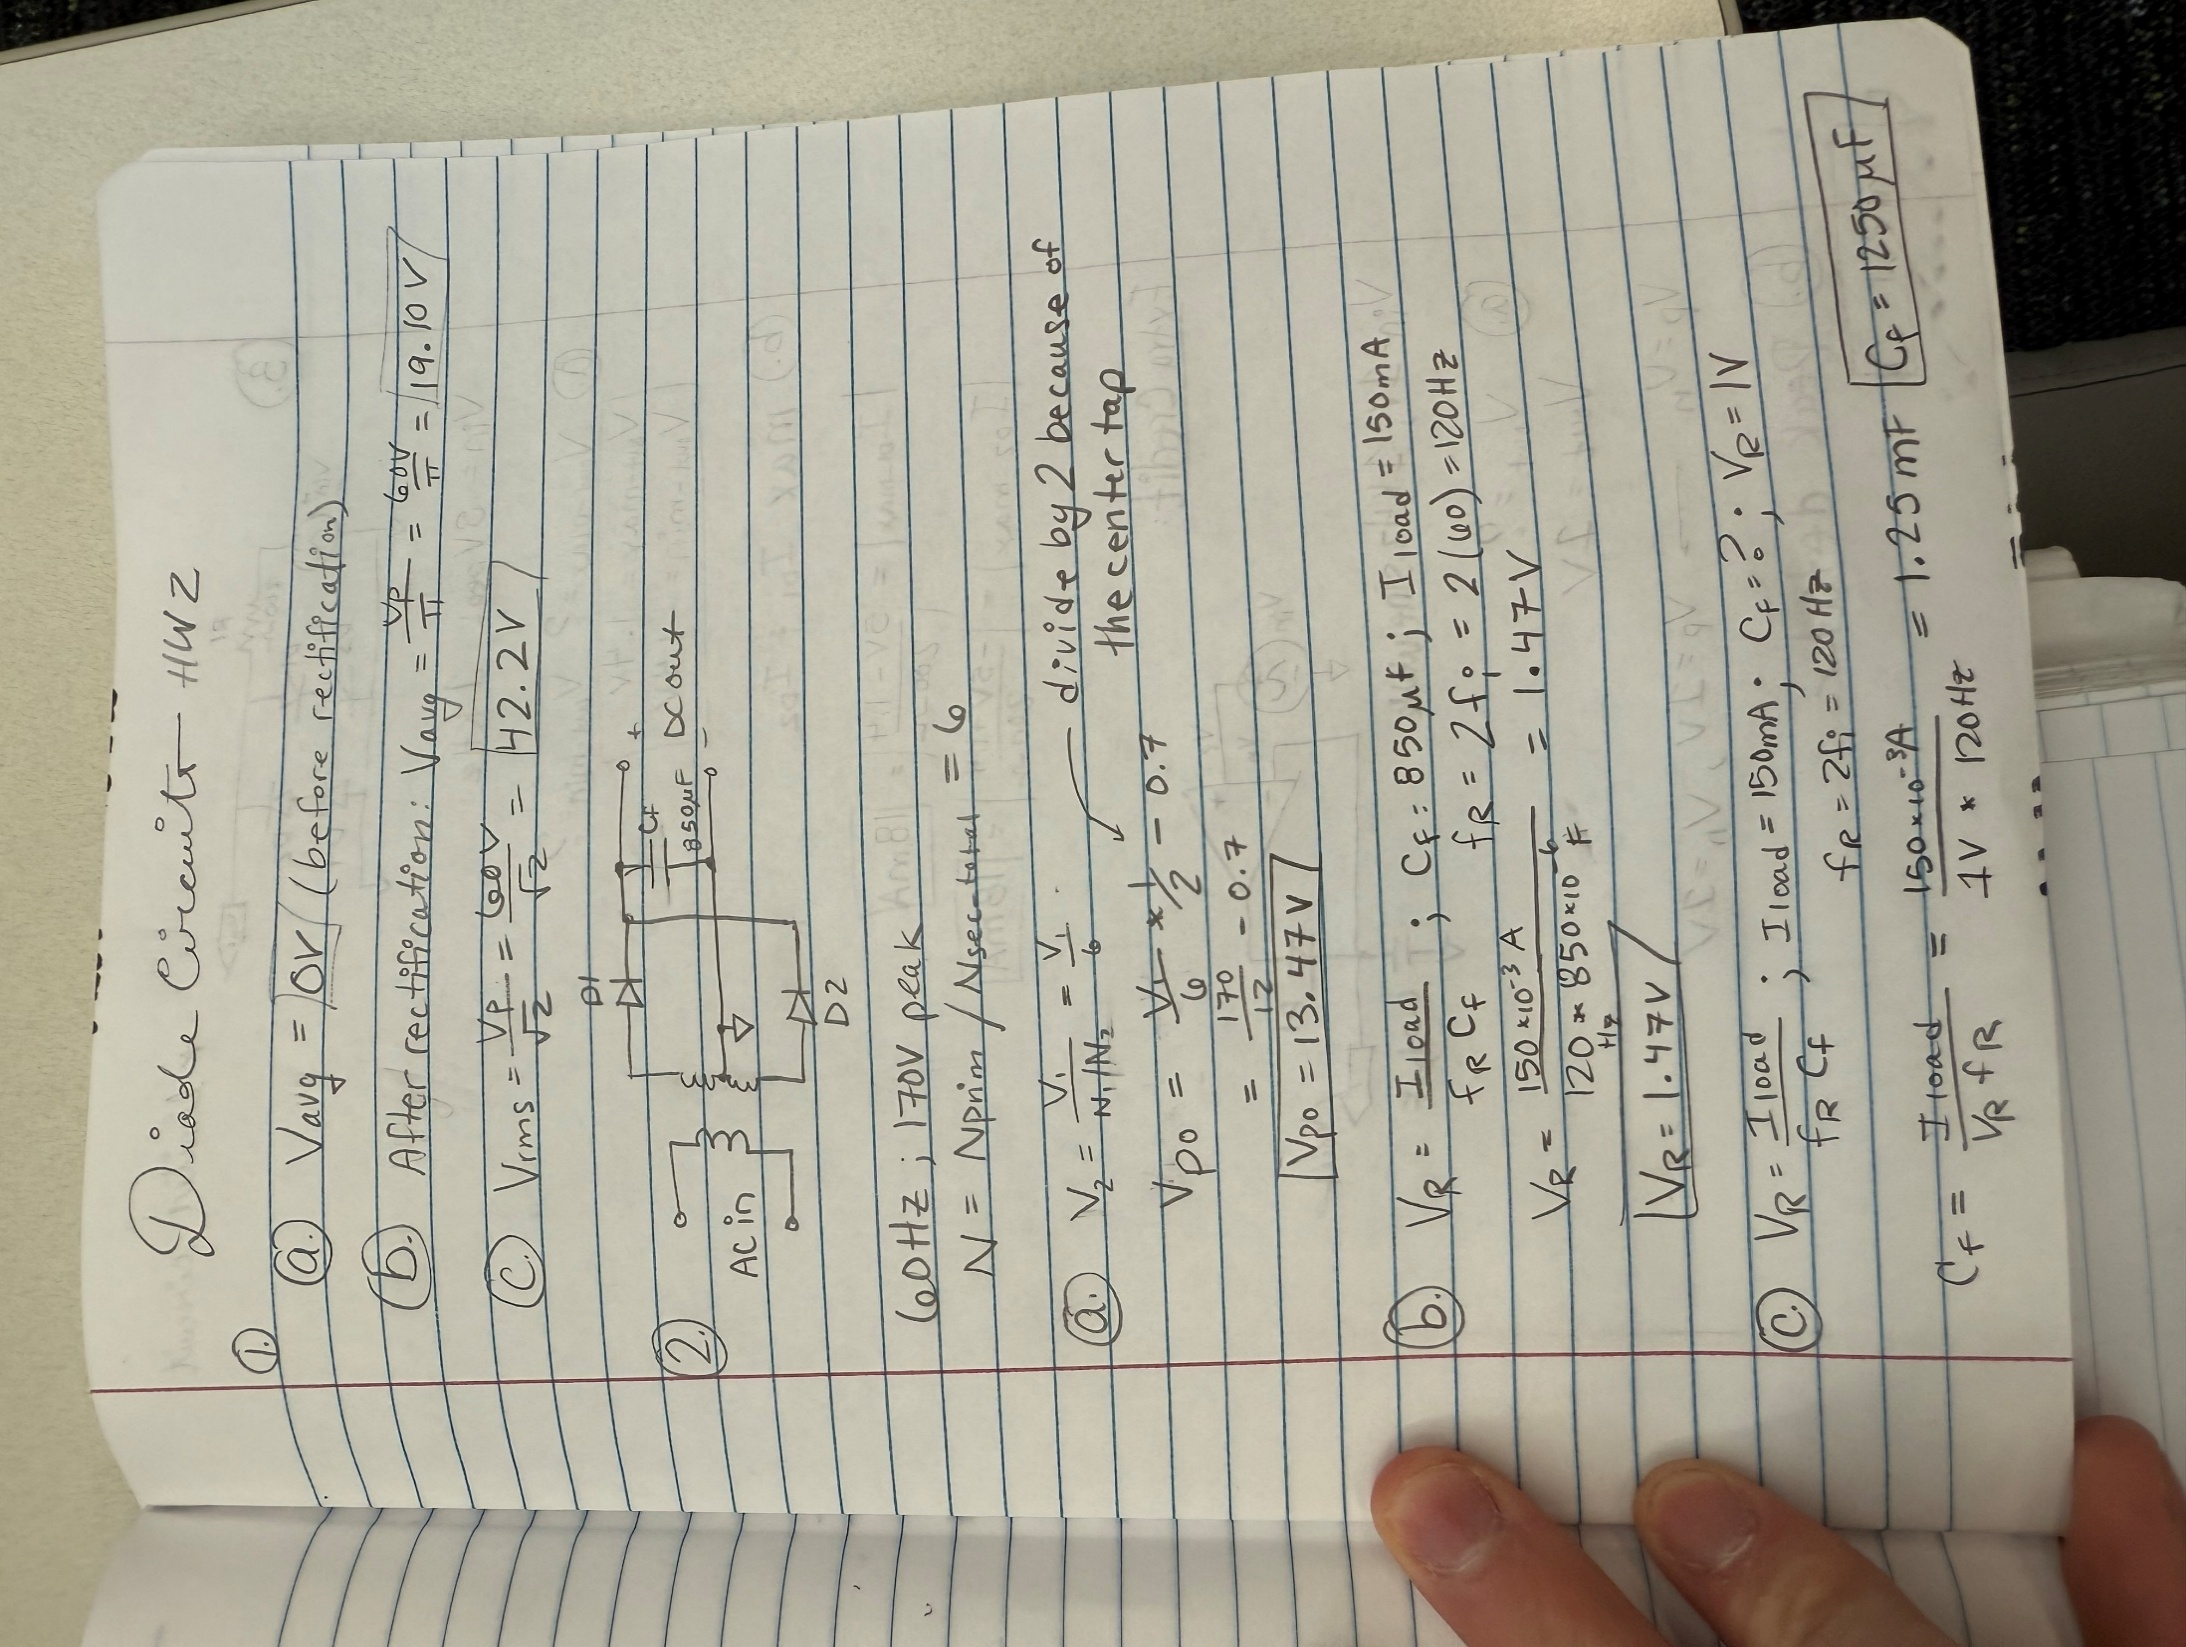 Diode Circuits - HW2
1.
a. Vavg = 0V (before rectification)
b. After rectification: Vavg = Vp/π = 60V/π = 19.10V
c. Vrms = Vp/√2 = 60V/√2 = 42.2V
2. AC in D1 D2 + Cf 850μF DC out -
60Hz ; 170V peak
N = Nprim / Nsec-total = 6
a. V2 = V1/(N1/N2) = V1/6
divide by 2 because of
the center tap
Vpo = V1/6 * 1/2 - 0.7
= 170/12 - 0.7
Vpo = 13.47V
b. VR = Iload/(fR Cf) ; Cf = 850μf ; Iload = 150mA
fR = 2fi = 2(60) = 120Hz
VR = 150x10⁻³ A/(120 Hz * 850x10⁻⁶ F) = 1.47V
VR = 1.47V
c. VR = Iload/(fR Cf) ; Iload = 150mA ; Cf = ? ; VR = 1V
fR = 2fi = 120Hz
Cf = Iload/(VR fR) = 150x10⁻³A/(1V * 120Hz) = 1.25mF Cf = 1250μF